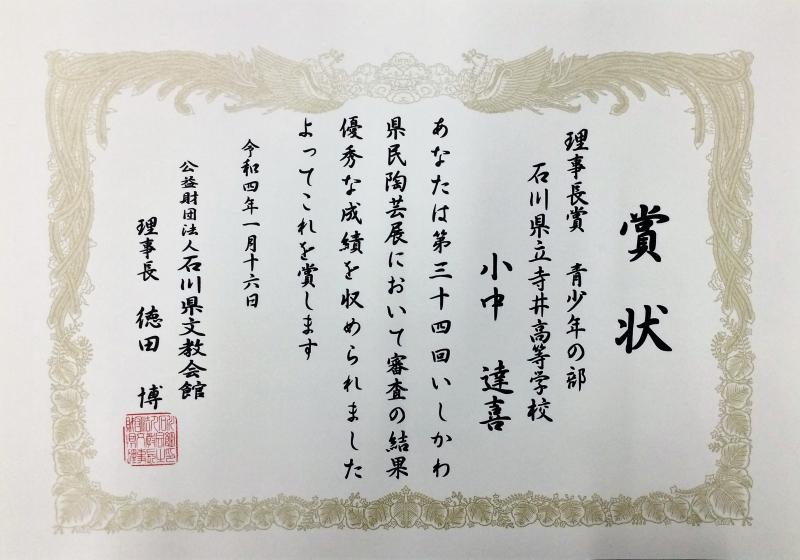 賞状
理事長賞 青少年の部
石川県立寺井高等学校
小中 達喜
あなたは第三十四回いしかわ
県民陶芸展において審査の結果
優秀な成績を収められました
よってこれを賞します
令和四年一月十六日
公益財団法人石川県文教会館
理事長 徳田 博